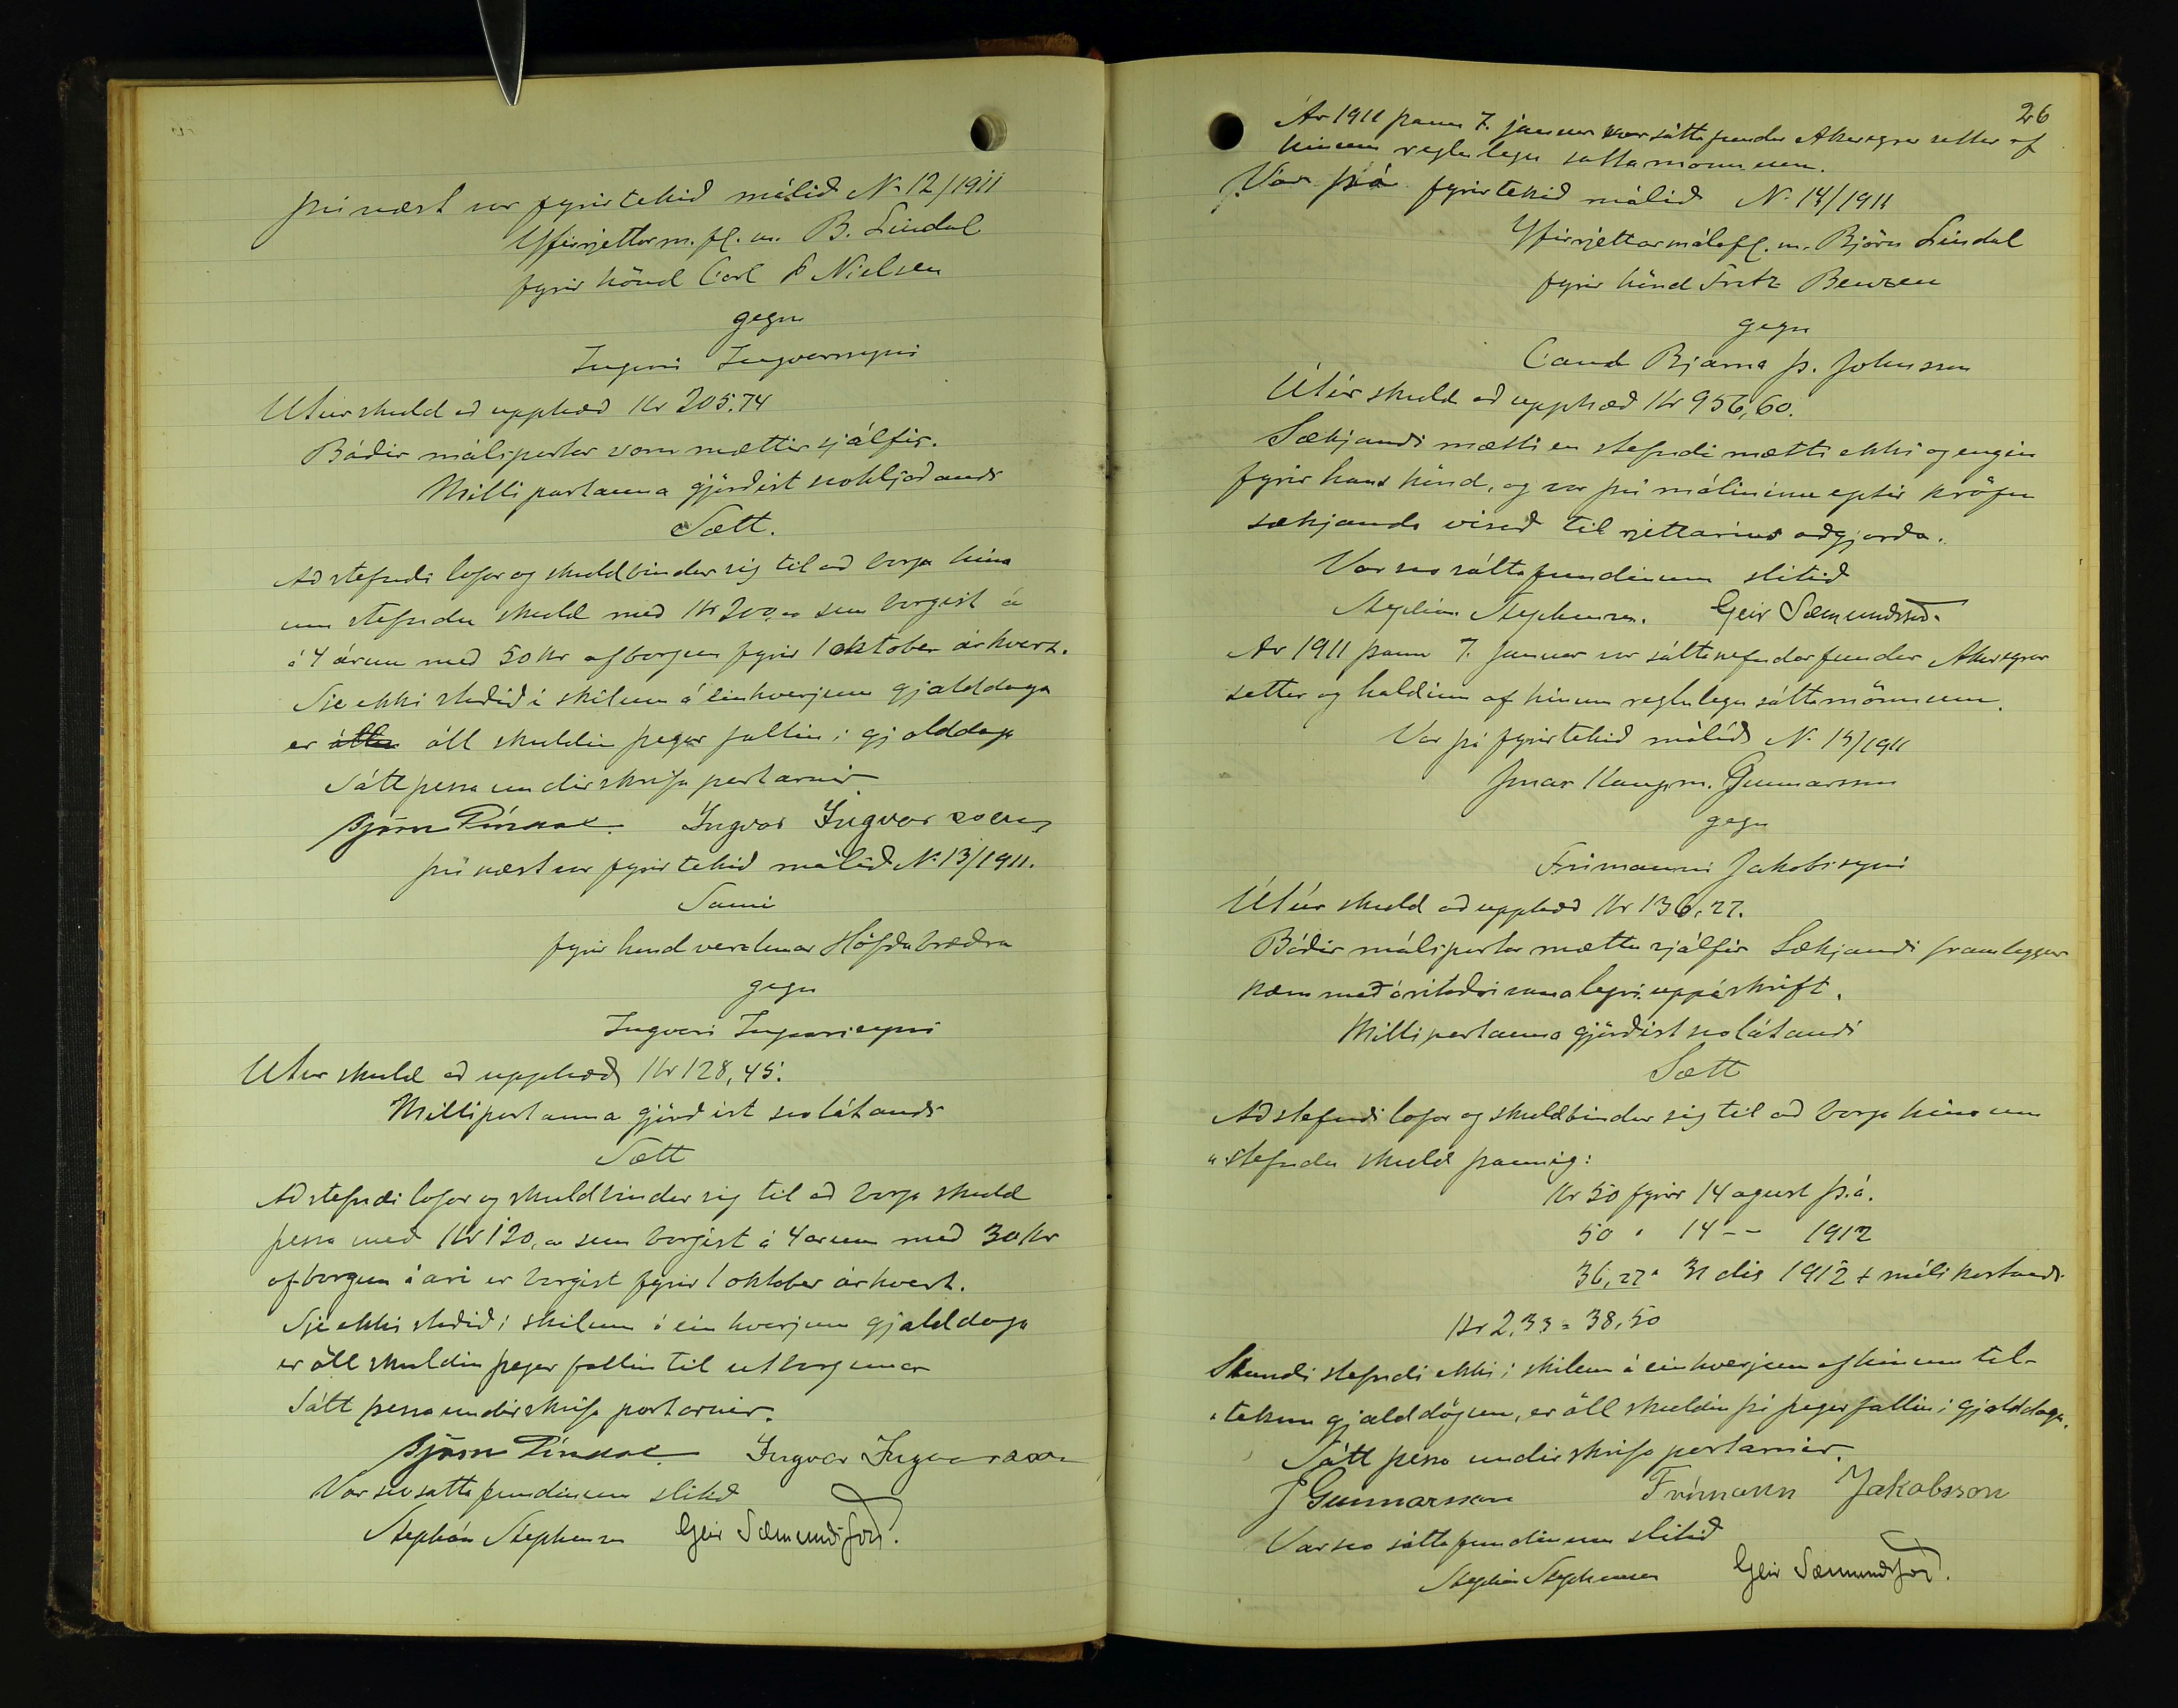 því næst var fyrirtekið málið No 12/1911
Yfirrjettarm.fl.m. B. Lindal
fyrir hönd Carl F Nielsen
gegn
Ingvari Ingvarssyni
Útúr skuld að upphæð Kr 205.74
Báðir málspartar voru mættir sjálfir.
Milli partanna gjörðist svohljóðandi
Sætt.
Að stefndi lofar og skuldbindur sig til að borga hina
um stefndu skuld með Kr 200,00 sem borgist á
á 4 árum með 50 Kr afborgun fyrir 1 oktober ár hvert.
Sje ekki staðið í skilum á einhverjum gjalddaga
er öll skuldin þegar fallin í gjalddaga
Sátt þessa undirskrifa partarnir.
Björn Líndal. Ingvar Ingvarsson
því næst var fyrirtekið málið No 13/1911.
Sami
fyrir hönd verslunar Höfðabræðra
gegn
Ingvari Ingvarssyni
Útúr skuld að upphæð Kr 128,45.
Milli partanna gjörðist svolátandi
Sætt
Að stefndi lofar og skuldbindur sig til að borga skuld
þessa með Kr 120,00 sem borgist á 4 árum með 30 Kr
afborgun á ári er borgist fyrir 1 oktober ár hvert.
Sje ekki staðið í skilum á einhverjum gjalddaga
er öll skuldin þegar fallin til útborgunar
Sátt þessa undirskrifa partarnir.
Björn Líndal. Ingvar Ingvarsson
Var svo sáttafundinum slitið
Stephán Stephensen Geir Sæmundsson.
26
Ár 1911 þann 7. januar var sáttafundur Akureyrar settur af
hinum reglulegu sáttamönnum.
Var þá fyrirtekið málið No 14/1911
Yfirrjettarmálafl.m. Björn Lindal
fyrir hönd Fritz Benzen
gegn
Cand Bjarna Þ. Johnsson
Útúr skuld að upphæð Kr 956,60.
Sækjandi mætti en stefndi mætti ekki og engin
fyrir hans hönd, og var því málinu eptir kröfu
sækjanda vísað til rjettarins aðgjörða.
Var svo sáttafundinum slitið
Stephán Stephensen. Geir Sæmundsson.
Ár 1911 þann 7. Januar var sáttanefndarfundur Akureyrar
settur og haldinn af hinum reglulegu sáttamönnum.
Var þá fyrirtekið málið No 15/1911
Jónas Kaupm. Gunnarsson
gegn
Frímanni Jakobssyni
Útúr skuld að upphæð Kr 136,27.
Báðir málspartar mættu sjálfir Sækjandi framleggur
kæru með áritaðri venalegri uppáskrift.
Milli partanna gjörðist svolátandi
Sætt
Að stefndi lofar og skuldbindur sig til að borga hina um
stefndu skuld þannig:
Kr 50 fyrir 14 agust þ.á.
50 " 14 -- 1912
36,27 " 31 des 1912 + málskostnaði
Kr 2,33 = 38,50
Standi stefndi ekki í skilum á einhverjum af hinum til-
teknu gjalddögum, er öll skuldin þá þegar fallin í gjalddaga.
Sátt þessa undirskrifa partarnir.
J Gunnarsson Frímann Jakobsson
Var svo sáttafundinum slitið
Stephán Stephensen Geir Sæmundsson.